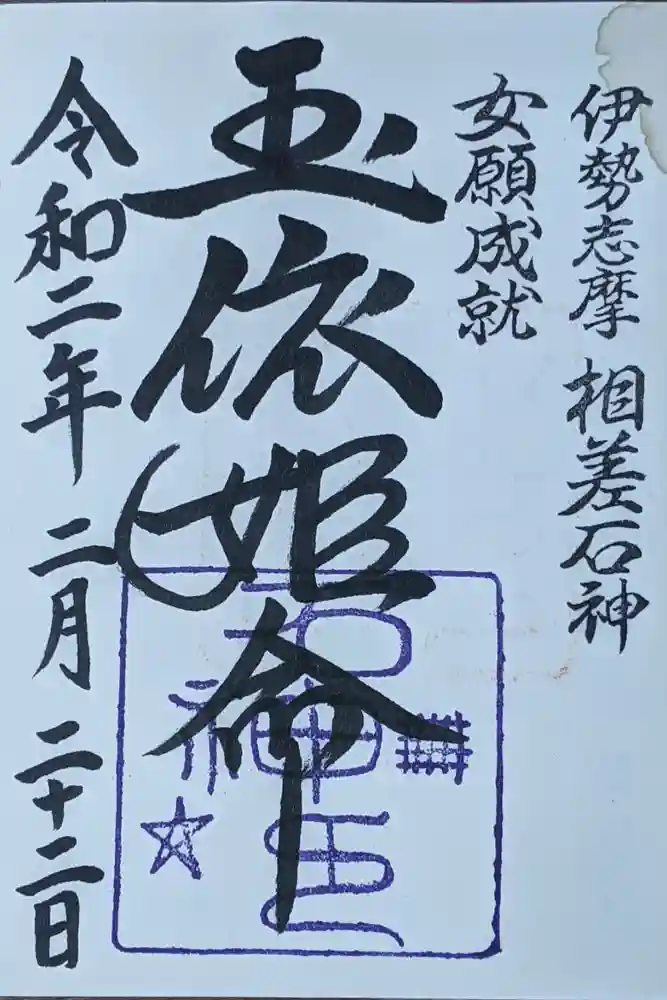 伊勢志摩 相差石神
女願成就
玉依姫命
令和二年 二月 二十二日
石神